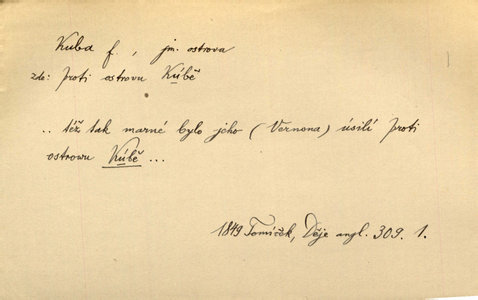 Kuba f., jm. ostrova
zde: proti ostrovu Kúbě
.. též tak marné bylo jeho (Vernona) úsilí proti
ostrowu Kúbě ...
1849 Tomíček, Děje angl. 309. 1.